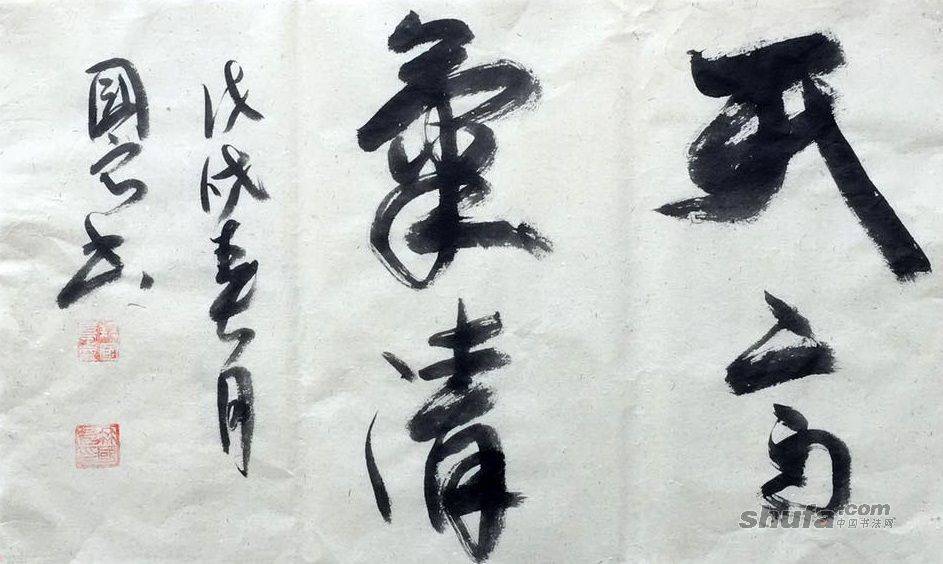 天高
氣清
戊戌春月
國 書
shufa.com
中国书法网